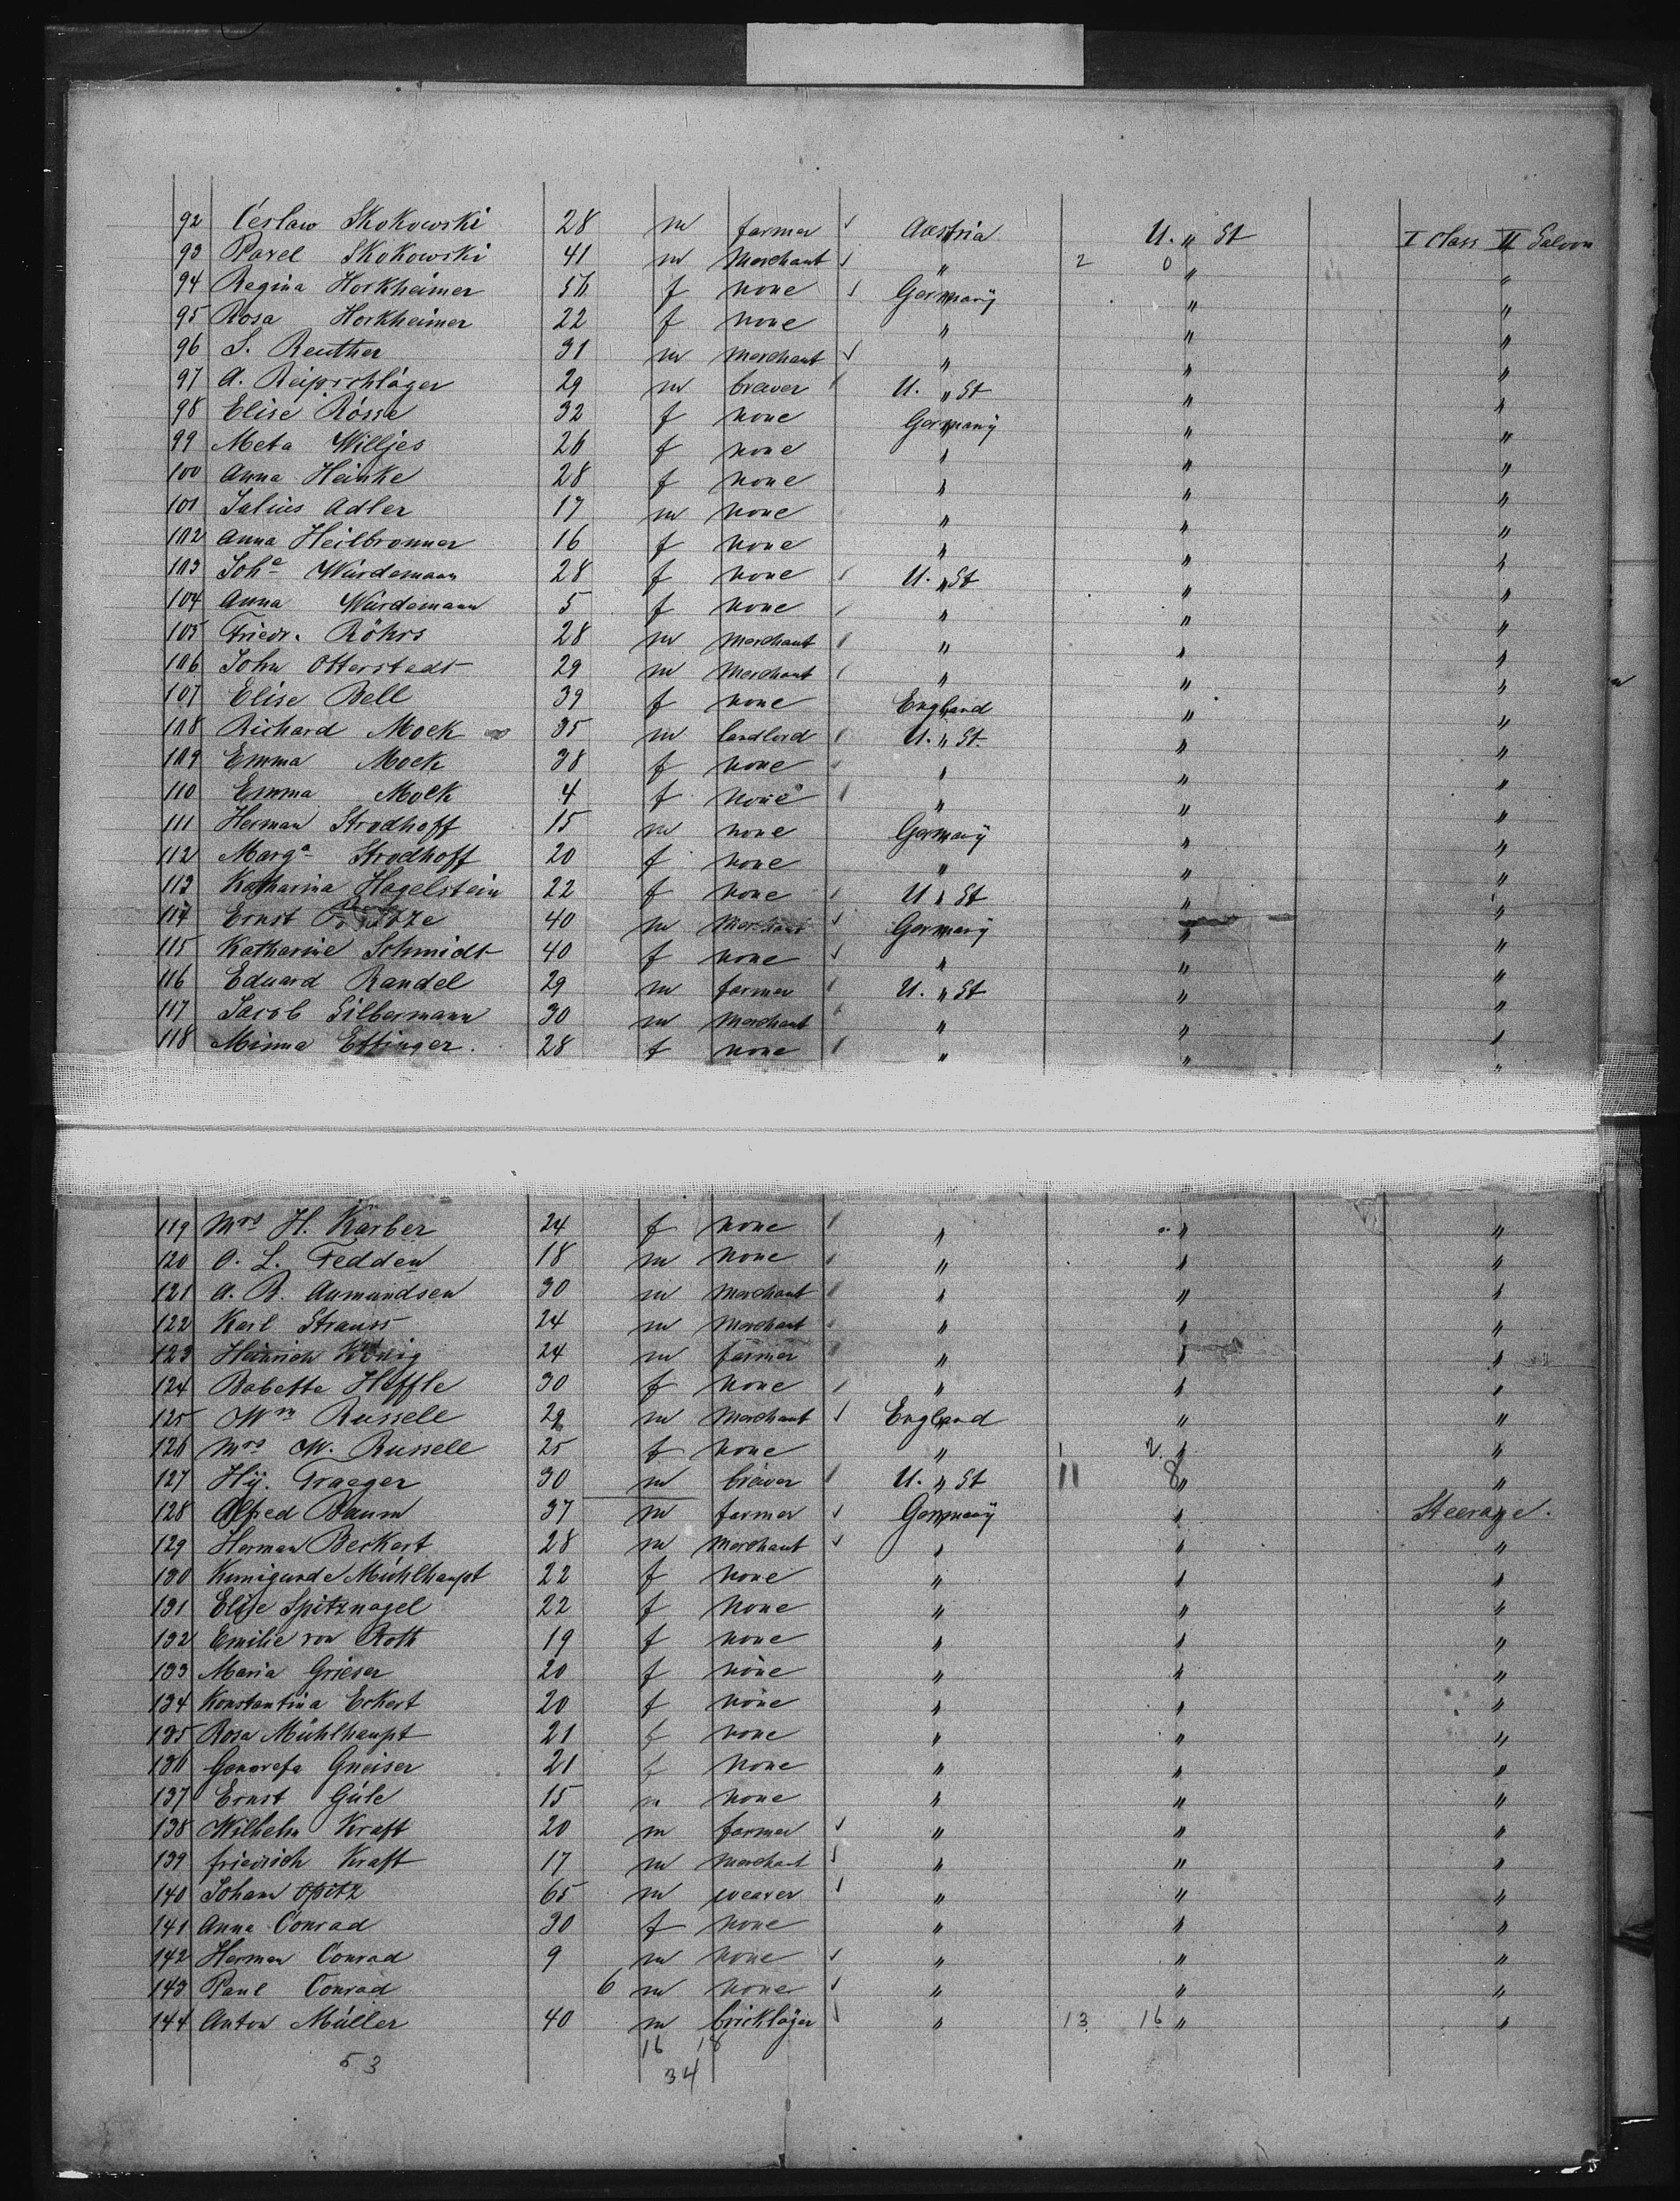 92 Ceslaw Skokowski 28 m farmer ✓ Austria U. " St I Class II Saloon
93 Pavel Skokowski 41 m Merchant ✓ " 2 0 " "
94 Regina Horkheimer f none ✓ Germany " "
95 Rosa Horkheimer 22 f none " " "
96 S. Reuther 31 m Merchant ✓ " " "
97 A. Reipschläger 29 m brewer U. " St " "
98 Elise Rösse 32 f none Germany " "
99 Meta Willjes 26 f none " " "
100 Anna Heinke 28 f none " " "
101 Julius Adler 17 m none " " "
102 Anna Heilbronner 16 f none " " "
103 Joh.e Würdemann 28 f none U. " St " "
104 Anna Würdemann 5 f none " " "
105 Friedr. Röhrs 28 m Merchant " " "
106 John Otterstedt 29 m Merchant " " "
107 Elise Bell 39 f none England " "
108 Richard Mock 35 m landlord U. " St. " "
109 Emma Mock 38 f none " " "
110 Emma Mock 4 f none " " "
111 Herman Strodhoff 15 m none Germany " "
112 Marg.a Strodhoff 20 f none " " "
113 Katharina Hagelstein 22 f none U " St " "
114 Ernst 40 m Merchant ✓ Germany " "
115 Katharine Schmidt 40 f none ✓ " " "
116 Eduard Randel 29 m farmer U. " St " "
117 Jacob Silbermann 30 m Merchant " " "
118 Minna Ettinger. 28 f none " " "
119 Mrs H. Karber 24 f none " " "
120 O. L. Fedden 18 m none " " "
121 A. B. Aumundsen 30 m Merchant " " "
122 Karl Strauss 24 m Merchant " " "
123 Heinrich König 24 m farmer " " "
124 Babette Heffle 30 f none " " "
125 Wm Russell 29 m Merchant ✓ England " "
126 Mrs W. Russell 25 f none " 1 2 " "
127 Hy. Graeger 30 m brewer U. " St 11 8 " "
128 Alfred Baum 37 m farmer ✓ Germany " Steerage.
129 Herman Beckert 28 m Merchant ✓ " " "
130 Kunigunde Mühlhaupt 22 f none " " "
131 Elise Spitznagel 22 f none " " "
132 Emilie von Roth 19 f none " " "
133 Maria Grieser 20 f none " " "
134 Konstantina Eckert 20 f none " " "
135 Rosa Mühlhaupt 21 f none " " "
136 Genovefa Gneiser 21 f none " " "
137 Ernst Güle 15 m none " " "
138 Wilhelm Kraft 20 m farmer ✓ " " "
139 friedrich Kraft 17 m merchant ✓ " " "
140 Johann Opitz 65 m weaver ✓ " " "
141 Anna Conrad 30 f none " " "
142 Herman Conrad 9 m none ✓ " " "
143 Paul Conrad 6 m none ✓ " " "
144 Anton Müller 40 m bricklayer ✓ " 13 16 " "
16 18
53 34